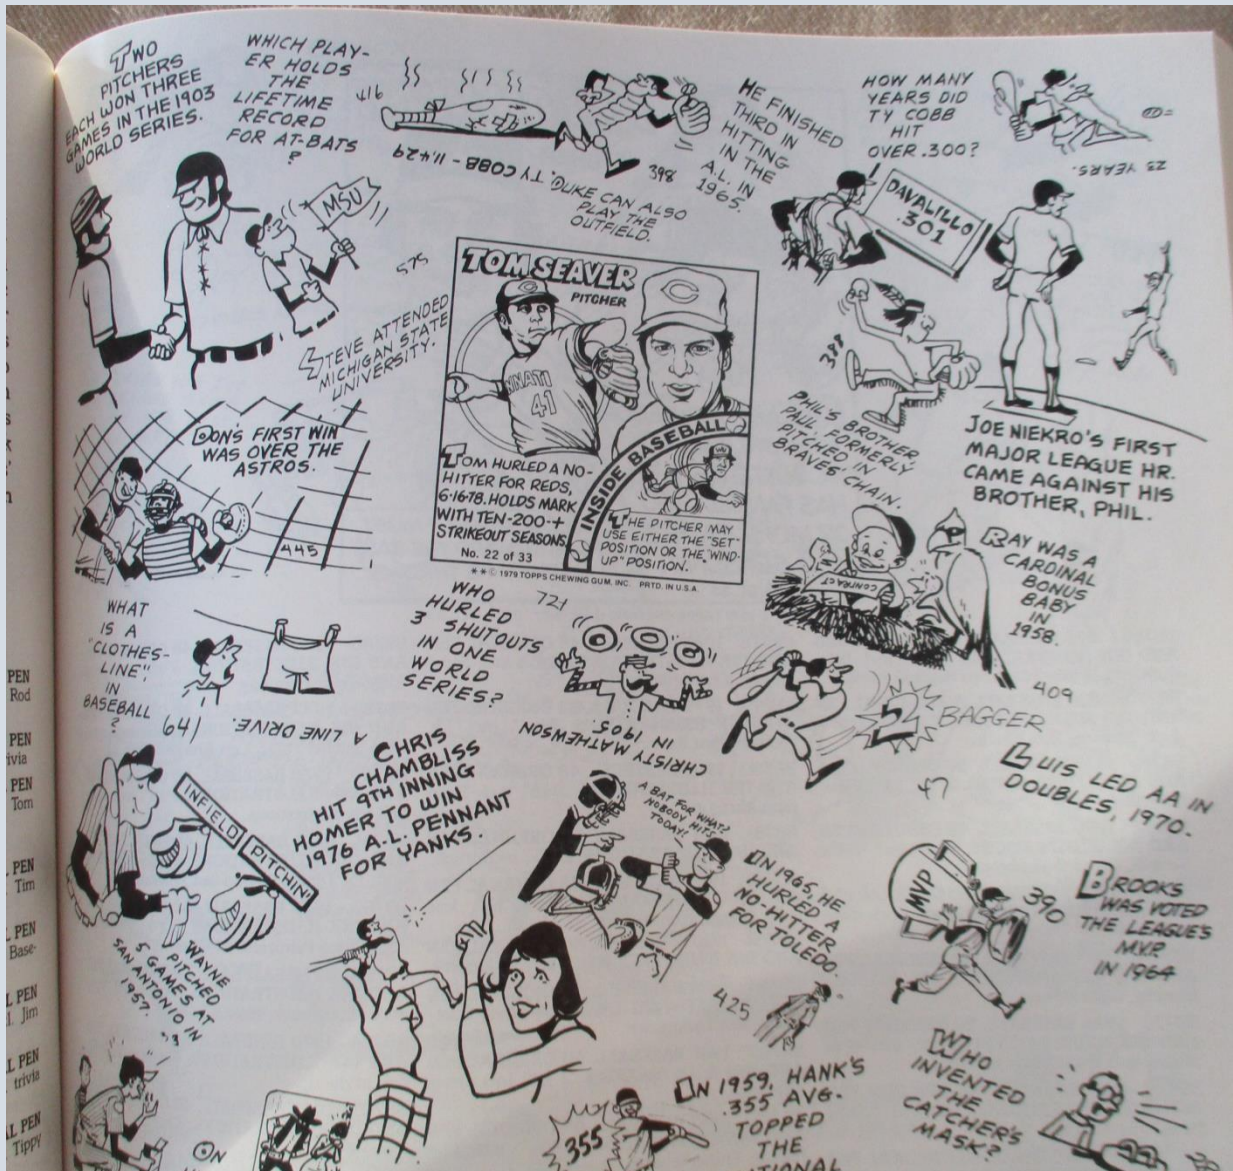 TWO
PITCHERS
EACH WON THREE
GAMES IN THE 1903
WORLD SERIES.
WHICH PLAY-
ER HOLDS
THE
LIFETIME
RECORD
FOR AT-BATS
?
416
TY COBB - 11,429
398
DUKE CAN ALSO
PLAY THE
OUTFIELD.
HE FINISHED
THIRD IN
HITTING
IN THE
A.L. IN
1965.
DAVALILLO
.301
HOW MANY
YEARS DID
TY COBB
HIT
OVER .300?
23 YEARS.
MSU
575
STEVE ATTENDED
MICHIGAN STATE
UNIVERSITY.
TOM SEAVER
PITCHER
CINNATI
41
TOM HURLED A NO-
HITTER FOR REDS,
6-16-78. HOLDS MARK
WITH TEN-200-+
STRIKEOUT SEASONS.
No. 22 of 33
INSIDE BASEBALL
THE PITCHER MAY
USE EITHER THE "SET"
POSITION OR THE "WIND-
UP" POSITION.
** © 1979 TOPPS CHEWING GUM, INC. PRTD. IN U.S.A.
388
PHIL'S BROTHER,
PAUL FORMERLY
PITCHED IN
BRAVES' CHAIN.
JOE NIEKRO'S FIRST
MAJOR LEAGUE HR.
CAME AGAINST HIS
BROTHER, PHIL.
DON'S FIRST WIN
WAS OVER THE
ASTROS.
445
CONTRACT
RAY WAS A
CARDINAL
BONUS
BABY
IN
1958.
409
WHAT
IS A
"CLOTHES-
LINE",
IN
BASEBALL
?
641
A LINE DRIVE.
WHO
HURLED
3 SHUTOUTS
IN ONE
WORLD
SERIES?
721
CHRISTY MATHEWSON
IN 1905.
2
BAGGER
47
LUIS LED AA IN
DOUBLES, 1970.
INFIELD
PITCHIN'
WAYNE
PITCHED
5 GAMES AT
SAN ANTONIO IN
1957.
CHRIS
CHAMBLISS
HIT 9TH INNING
HOMER TO WIN
1976 A.L. PENNANT
FOR YANKS.
A BAT FOR WHAT?
NOBODY HITS
TODAY!
IN 1965, HE
HURLED A
NO-HITTER
FOR TOLEDO.
425
MVP
390
BROOKS
WAS VOTED
THE LEAGUE'S
M.V.P.
IN 1964
ON
355
IN 1959, HANK'S
.355 AVG.
TOPPED
THE
WHO
INVENTED
THE
CATCHER'S
MASK?
PEN
Rod
PEN
PEN
Tom
PEN
Tim
PEN
Base-
PEN
Jim
PEN
trivia
PEN
Tippy